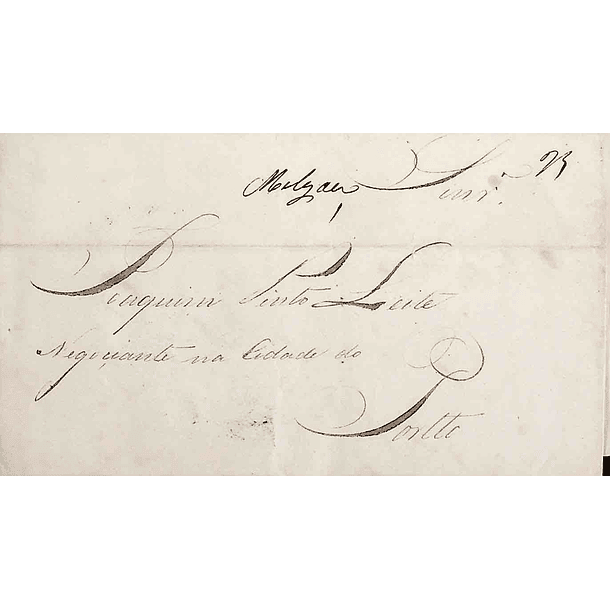 Melgaço Senr. 25
Joaquim Pinto Leite
Negociante na Cidade do
Portto